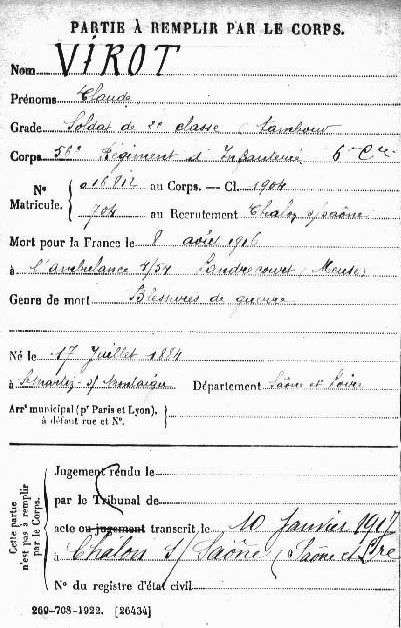 PARTIE À REMPLIR PAR LE CORPS.
Nom VIROT
Prénoms Claude
Grade Soldat de 2e classe (tambour
Corps 56e Régiment d'Infanterie 6e Cie
Nº Matricule. au Corps. — Cl. 1904
704 au Recrutement Chalon s/Saône
Mort pour la France le 8 août 1916
à l'ambulance Landrecourt (Meuse)
Genre de mort Blessures de guerre
Né le 17 Juillet 1884
à St Martin s/ Montaigu Département Saône et Loire
Arrt municipal (pr Paris et Lyon),
à défaut rue et Nº.
Cette partie n'est pas à remplir par le Corps.
Jugement rendu le
par le Tribunal de
acte ou jugement transcrit le 10 Janvier 1917
à Chalon s/ Saône (Saône et Lre
Nº du registre d'état civil
269-708-1922. [26434]